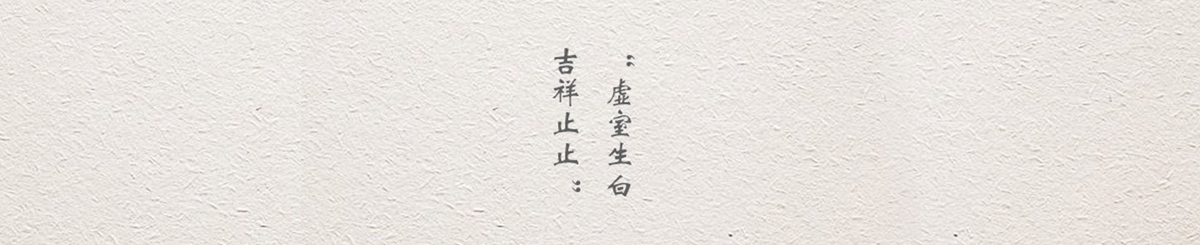 ：虚室生白
吉祥止止：